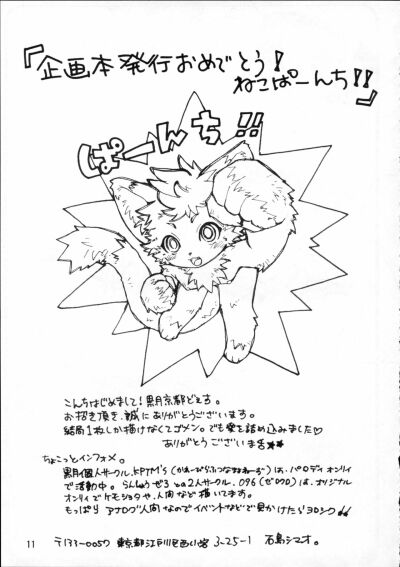 『企画本発行おめでとう!
ねこぱーんち!!』
ぱーんち!!
こんちはじめまして!黒月京都どぇす。
お招き頂き、誠にありがとうございます。
結局1枚しか描けなくてゴメン。でも愛を詰め込みました♡
ありがとうございます★★
ちょこっとインフォメ。
黒月個人サークル、KPTM's は、パロディオンリィ
で活動中。らんしゅうぜろと2人サークル、096(ゼロクロ)は、オリジナル
オンリィでケモショタや、人間など描いてます。
もっぱらアナログ人間なのでイベントなどで見かけたらヨロシク
11
〒133-0057 東京都江戸川区西小岩 3-25-1 石島シマオ。